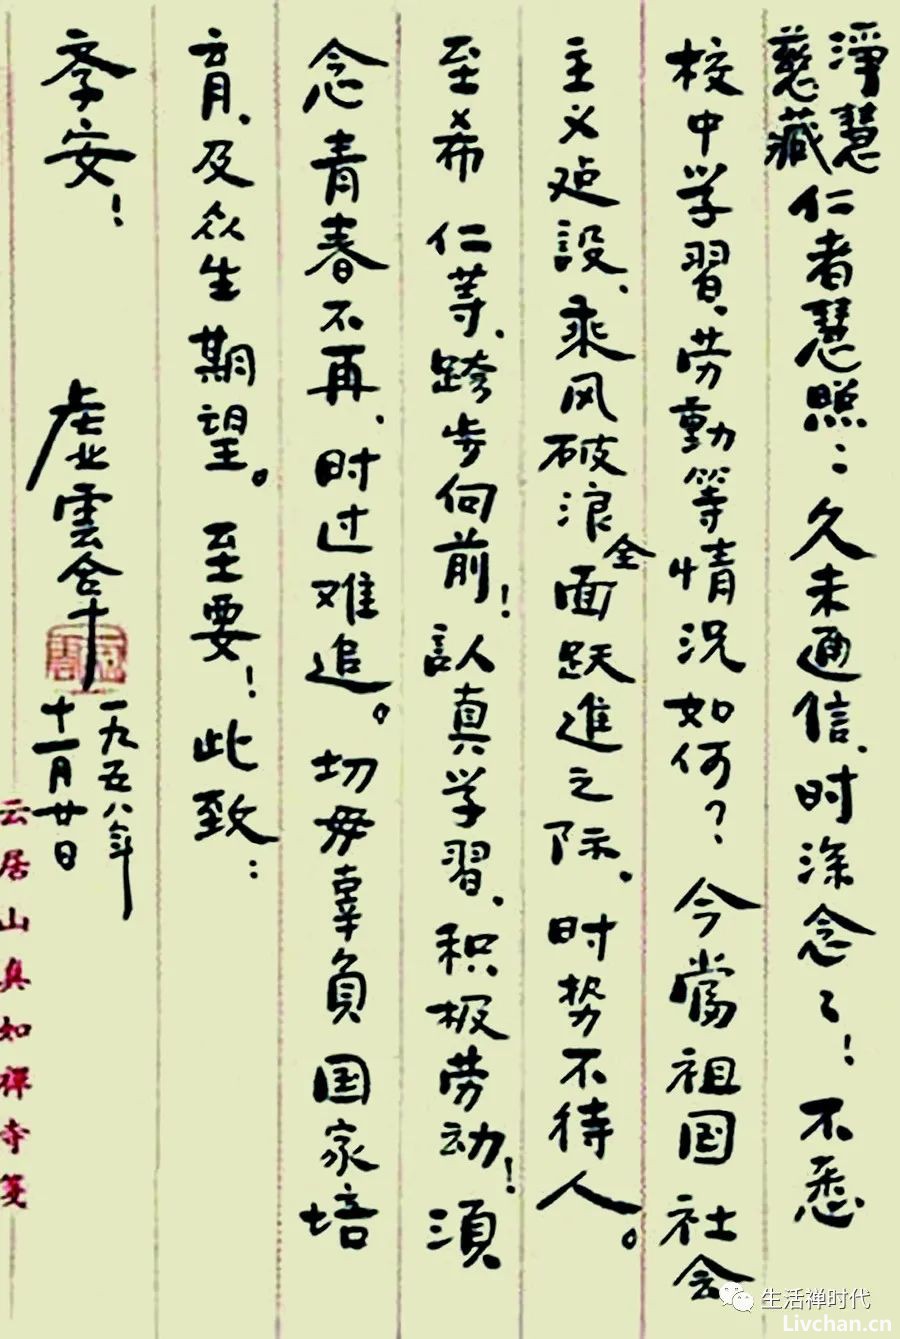 淨慧
慈藏
仁者慧照：久未通信、时深念々！不悉
校中学習、劳動等情况如何？今當祖国社会
主义建設、乘风破浪全面跃進之际。时势不待人。
至希 仁等、跨步向前！認真学習、积极劳动！須
念青春不再、时过难追。切毋辜負国家培
育、及众生期望。至要！此致：
斋安！
虚雲合十
一九五八年
十一月廿日
云居山真如禪寺箋
生活禅时代
Livchan.cn